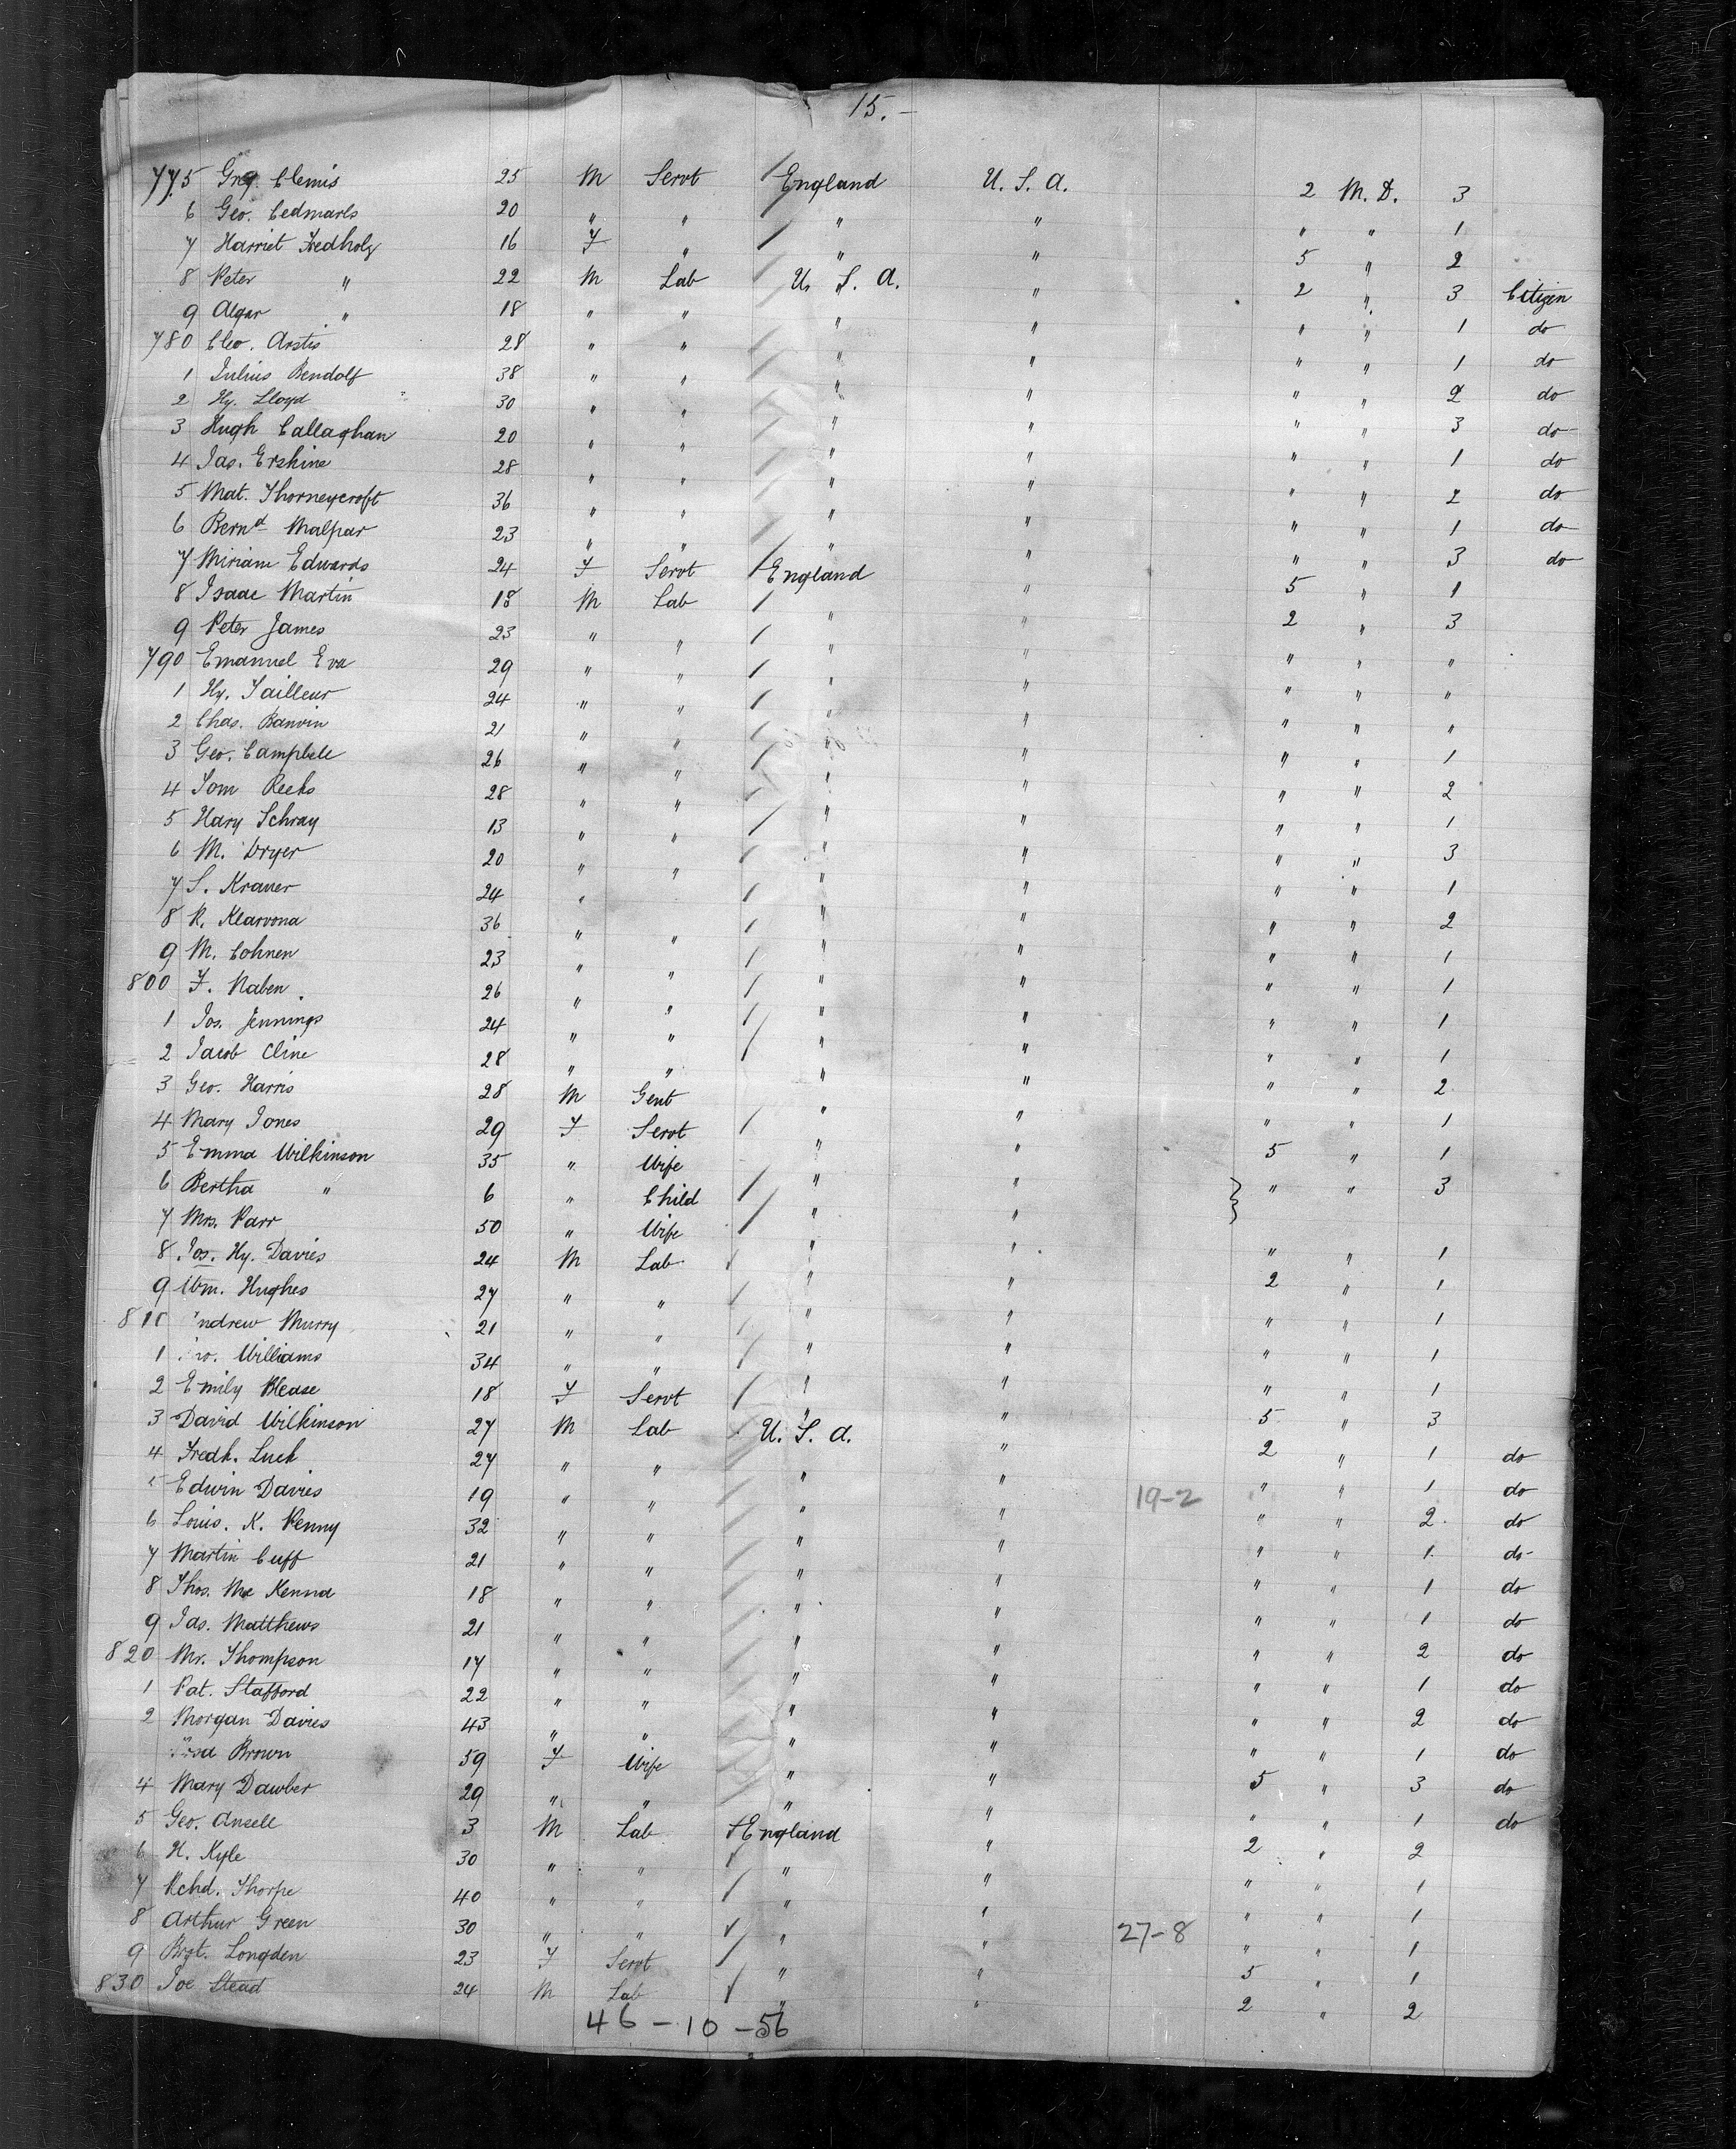 15.-
775 Greg. Clemis 25 M Servt England U. S. A. 2 M. D. 3
6 Geo. Cedmarls 20 " " " " " " 1
7 Harriet Fredholz 16 F " " " 5 " 2
8 Peter " 22 M Lab U. S. A. " 2 " 3 Citizen
9 Algar " 18 " " " " " " 1 do
780 Cleo. Arstis 28 " " " " " " 1 do
1 Julius Bendolf 38 " " " " " " 2 do
2 Hy. Lloyd 30 " " " " " " 3 do
3 Hugh Callaghan 20 " " " " " " 1 do
4 Jas. Erskine 28 " " " " " " 2 do
5 Mat. Thorneycroft 36 " " " " " " 1 do
6 Bernd Malpar 23 " " " " " " 3 do
7 Miriam Edwards 24 F Servt England " 5 " 1
8 Isaac Martin 18 M Lab " " 2 " 3
9 Peter James 23 " " " " " " "
790 Emanuel Eva 29 " " " " " " "
1 Hy. Tailleur 24 " " " " " " "
2 Chas. Banvin 21 " " " " " " 1
3 Geo. Campbell 26 " " " " " " 2
4 Tom Reeks 28 " " " " " " 1
5 Hary Schray 13 " " " " " " 3
6 M. Dryer 20 " " " " " " 1
7 S. Kraner 24 " " " " " 2
8 R. Klarvona 36 " " " " " " 1
9 M. Cohnen 23 " " " " " " 1
800 F. Naben 26 " " " " " " 1
1 Jos. Jennings 24 " " " " " " 1
2 Jacob Cline 28 " " " " " " 2
3 Geo. Harris 28 M Gent " " " " 1
4 Mary Jones 29 F Servt " " 5 " 1
5 Emma Wilkinson 35 " Wife " " " " 3
6 Bertha " 6 " Child " "
7 Mrs. Parr 50 " Wife " " " " 1
8 Jos. Hy. Davies 24 M Lab " " 2 " 1
9 Wm. Hughes 27 " " " " " " 1
810 ndrew Murry 21 " " " " " " 1
1 Williams 34 " " " " " " 1
2 Emily Blease 18 F Servt " " 5 " 3
3 David Wilkinson 27 M Lab U. S. A. " 2 " 1 do
4 Fredk. Luck 27 " " " " " " 1 do
5 Edwin Davies 19 " " " " 19-2 " " 2 do
6 Louis. K. Penny 32 " " " " " " 1 do
7 Martin Cuff 21 " " " " " " 1 do
8 Thos. Mc Kenna 18 " " " " " " 1 do
9 Jas. Matthews 21 " " " " " " 2 do
820 Mr. Thompson 17 " " " " " " 1 do
1 Pat. Stafford 22 " " " " " " 2 do
2 Morgan Davies 43 " " " " " " 1 do
Brown 59 F Wife " " 5 " 3 do
4 Mary Dawber 29 " " " " " " 1 do
5 Geo. Ansell 3 M Lab England " 2 " 2
6 H. Kyle 30 " " " " " " 1
7 Rchd. Thorpe 40 " " " " " " 1
8 Arthur Green 30 " " " " 27-8 " " 1
9 Brgt. Longden 23 F Servt " " 5 " 1
830 Joe Stead 24 M Lab " " 2 " 2
46-10-56